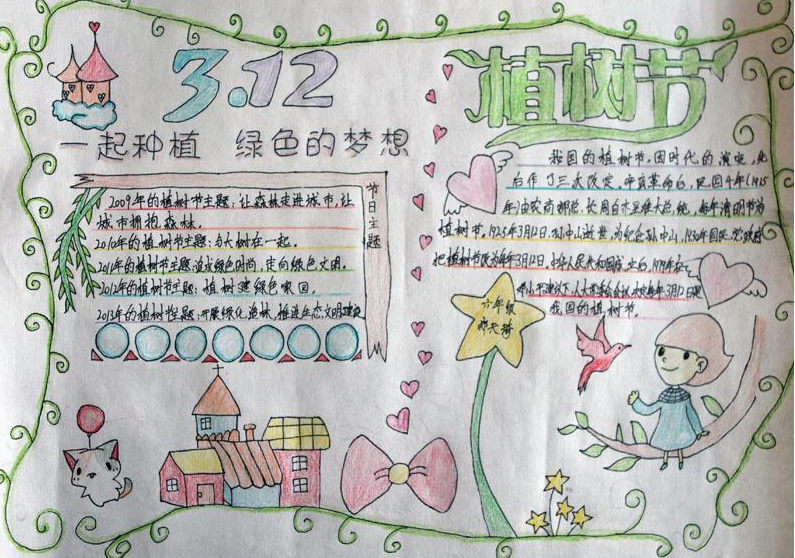 3.12
一起种植 绿色的梦想
节日主题
2009年的植树节主题:让森林走进城市,让
城市拥抱森林。
2010年的植树节主题:与大树在一起。
2011年的植树节主题:追求绿色时尚,走向绿色文明。
2012年的植树节主题:植树建绿色家园。
2013年的植树节主题:开展绿化造林,推进生态文明建设
植树节
我国的植树节,因时代的演变,先
后作了三次改定,辛亥革命后,民国4年(1915
年)由农商部总长周自齐呈准大总统,每年清明节为
植树节。1925年3月12日,孙中山逝世,为纪念孙中山,1930年国民党政府
把植树节改为每年3月12日,中华人民共和国成立后,1979年
下,人大常委会会议决定每年3月12日是
我国的植树节。
六年级